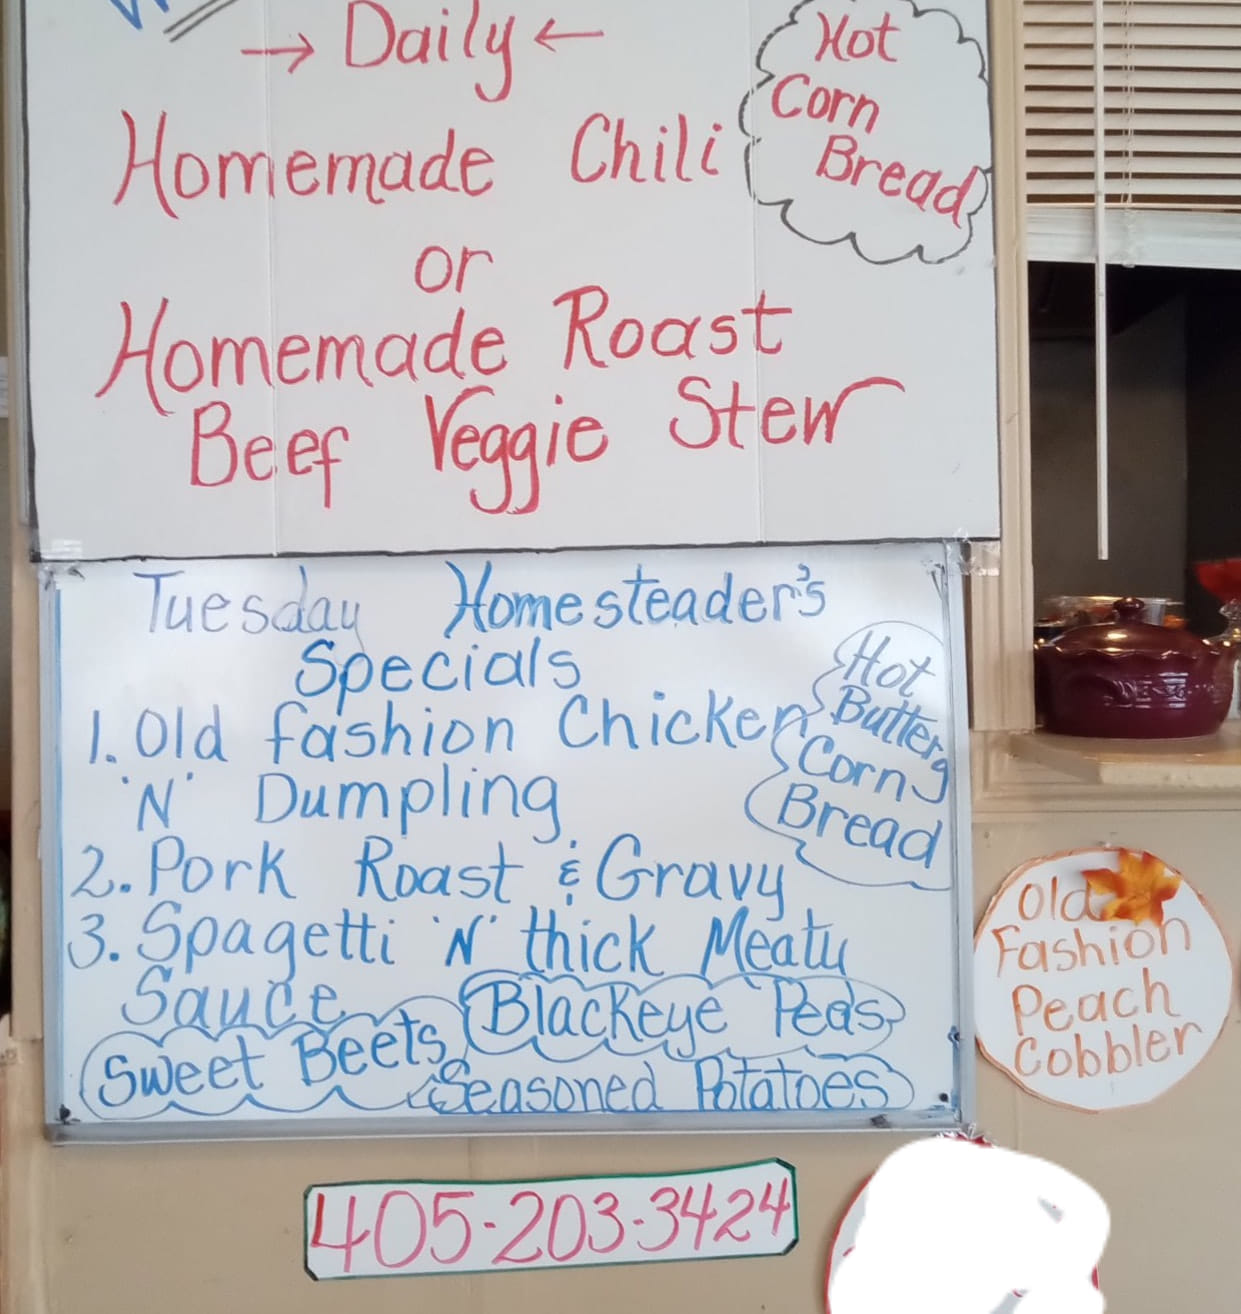 → Daily ←
Homemade Chili
or
Homemade Roast
Beef Veggie Stew
Hot
Corn
Bread
Tuesday Homesteader's
Specials
1. Old fashion Chicken
'N' Dumpling
2. Pork Roast & Gravy
3. Spagetti 'N' thick Meaty
Sauce
Hot
Buttery
Corn
Bread
Sweet Beets
Blackeye Peas
Seasoned Potatoes
Old
Fashion
Peach
Cobbler
405-203-3424